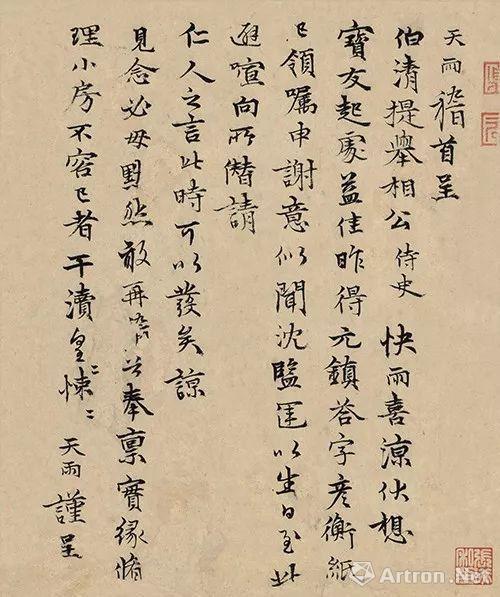 天雨稽首呈
伯清提舉相公侍史快雨喜涼伏想
寶友起處益佳昨得元鎮答字彦衡紙
已領囑申謝意似聞沈監運以生日至此
避喧向所僭請
仁人之言此時可以發矣諒
見念必毋默然敢再奉稟實緣脩
理小房不容已者干瀆皇〻悚〻天雨謹呈
Artron.Net